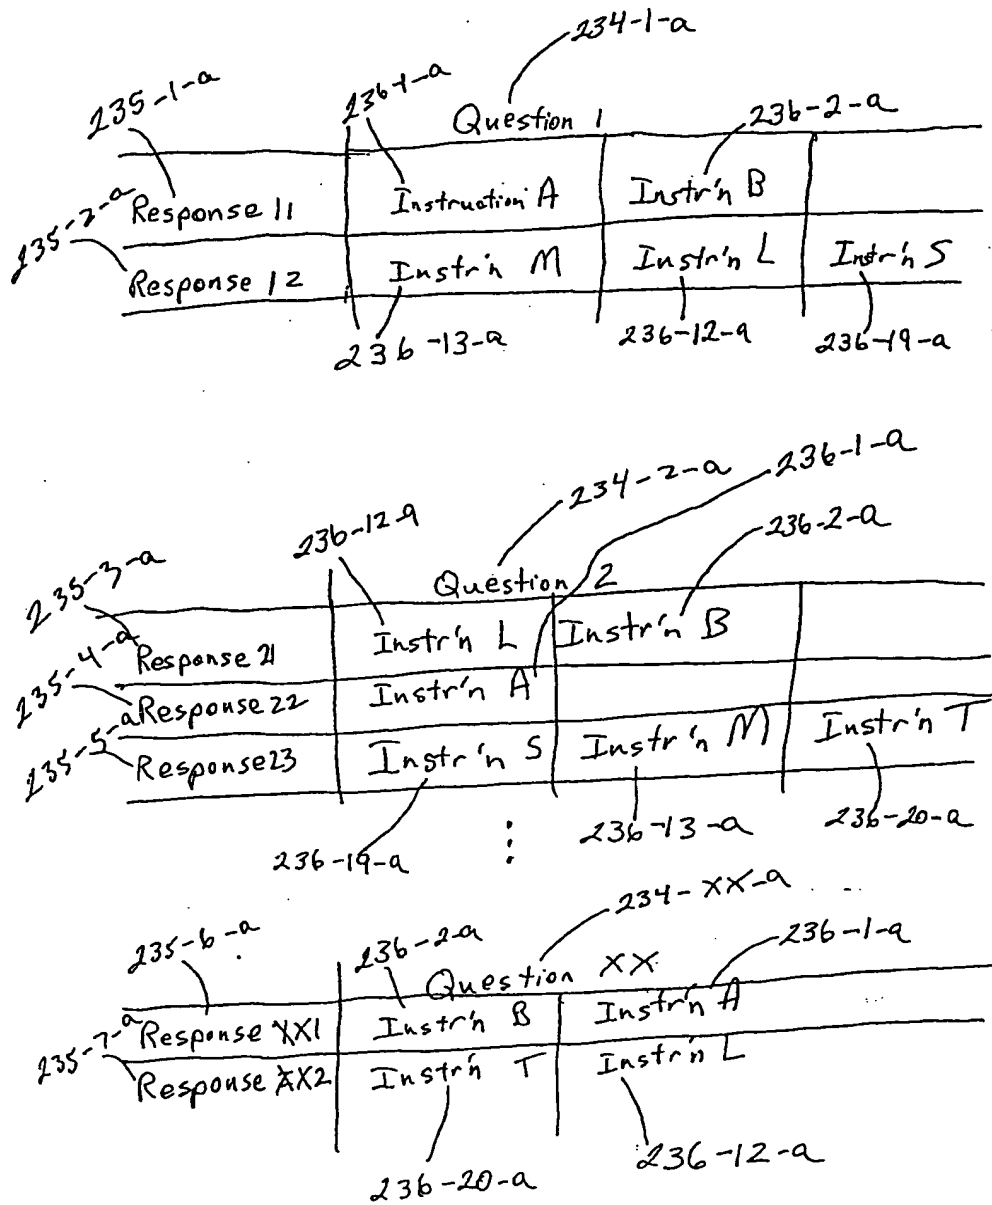 234-1-a
235-1-a 236-1-a
Question 1 236-2-a
235-2-a Response 11 Instruction A Instr'n B
Response 12 Instr'n M Instr'n L Instr'n S
236-13-a 236-12-a 236-19-a
234-2-a 236-1-a
236-12-a 236-2-a
235-3-a Question 2
Response 21 Instr'n L Instr'n B
235-4-a Response 22 Instr'n A
235-5-a Response 23 Instr'n S Instr'n M Instr'n T
236-19-a 236-13-a 236-20-a
234-XX-a
235-6-a 236-2-a 236-1-a
Question XX
Response XX1 Instr'n B Instr'n A
235-7-a Response XX2 Instr'n T Instr'n L
236-20-a 236-12-a